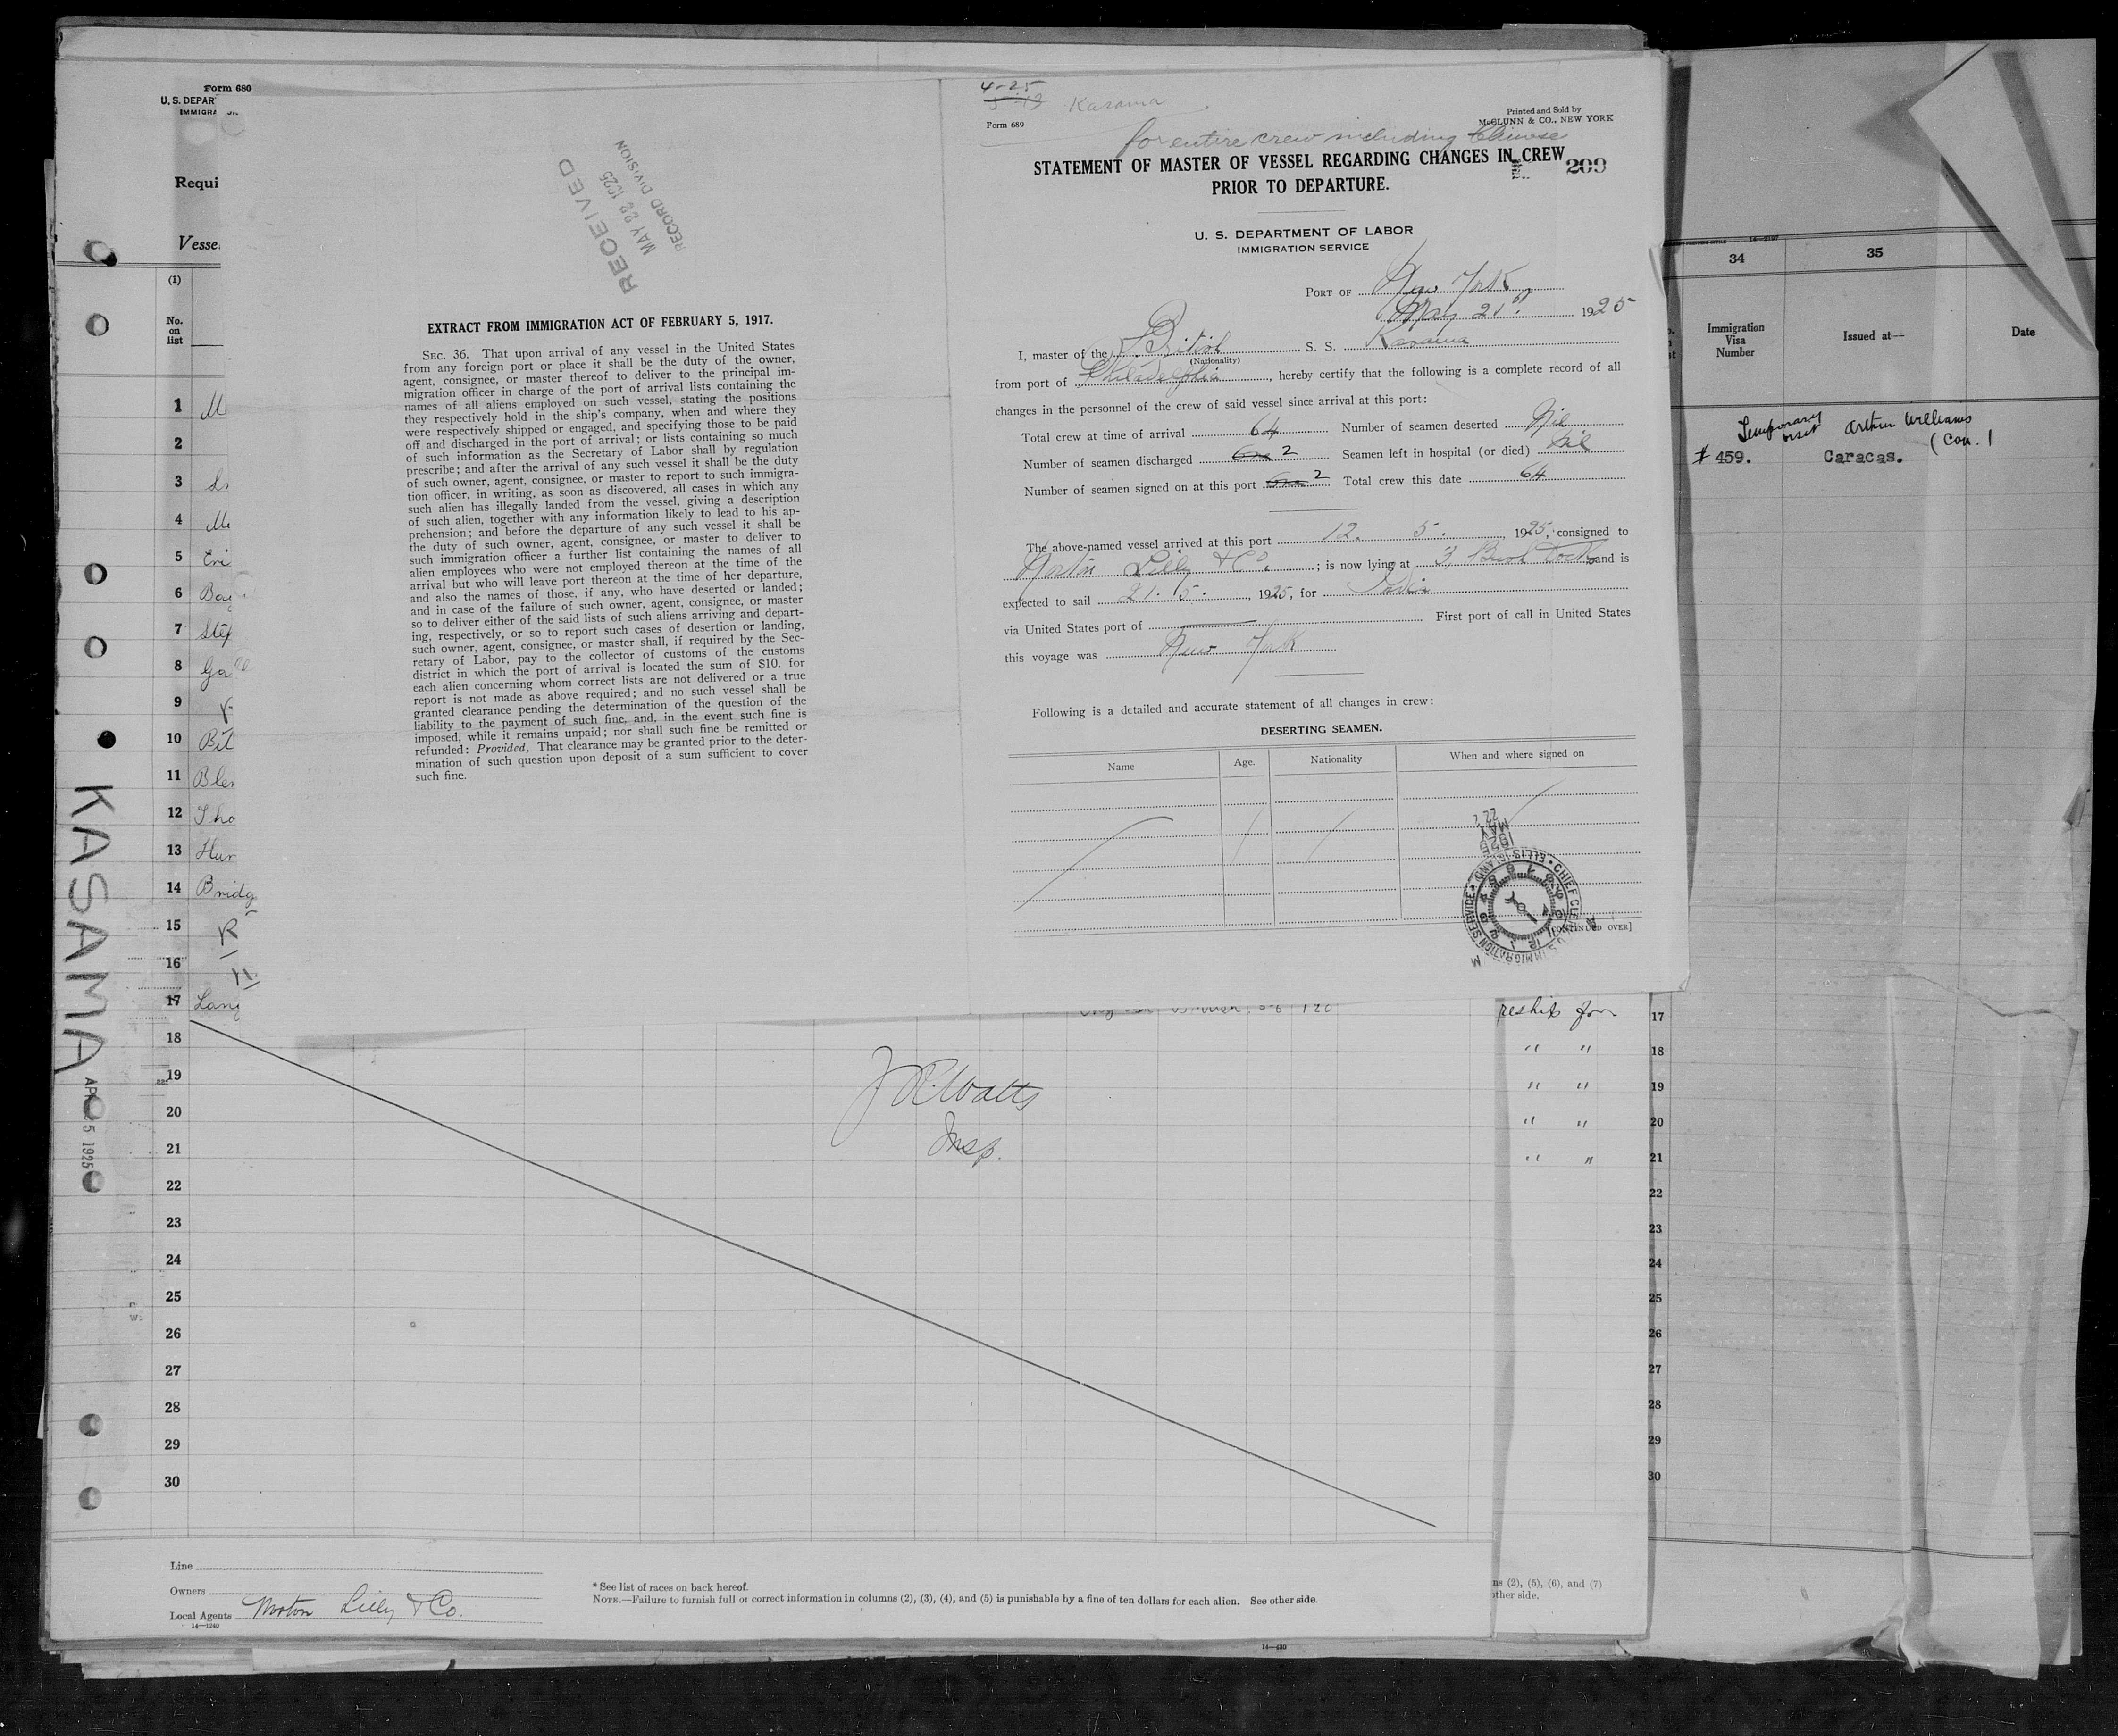 Form 680
U. S. DEPAR
IMMIGRA
Requi
Vesse
(1)
No.
on
list
1
2
3
4
5 Eri
6
7 Step
8 Ga
9
10 Bil
11 Ble
12 Tho
13 Hur
14 Bridg
15 R
16
17 Lang
18
19
20
21
22
23
24
25
26
27
28
29
30
KASAMA
1925
J R Watts
Insp.
Line
Owners
Local Agents Norton Lilly & Co.
14—1240
* See list of races on back hereof.
NOTE.—Failure to furnish full or correct information in columns (2), (3), (4), and (5) is punishable by a fine of ten dollars for each alien. See other side.
RECEIVED
MAY 22 1925
RECORD DIVISION
EXTRACT FROM IMMIGRATION ACT OF FEBRUARY 5, 1917.
SEC. 36. That upon arrival of any vessel in the United States
from any foreign port or place it shall be the duty of the owner,
agent, consignee, or master thereof to deliver to the principal im-
migration officer in charge of the port of arrival lists containing the
names of all aliens employed on such vessel, stating the positions
they respectively hold in the ship's company, when and where they
were respectively shipped or engaged, and specifying those to be paid
off and discharged in the port of arrival; or lists containing so much
of such information as the Secretary of Labor shall by regulation
prescribe; and after the arrival of any such vessel it shall be the duty
of such owner, agent, consignee, or master to report to such immigra-
tion officer, in writing, as soon as discovered, all cases in which any
such alien has illegally landed from the vessel, giving a description
of such alien, together with any information likely to lead to his ap-
prehension; and before the departure of any such vessel it shall be
the duty of such owner, agent, consignee, or master to deliver to
such immigration officer a further list containing the names of all
alien employees who were not employed thereon at the time of the
arrival but who will leave port thereon at the time of her departure,
and also the names of those, if any, who have deserted or landed;
and in case of the failure of such owner, agent, consignee, or master
so to deliver either of the said lists of such aliens arriving and depart-
ing, respectively, or so to report such cases of desertion or landing,
such owner, agent, consignee, or master shall, if required by the Sec-
retary of Labor, pay to the collector of customs of the customs
district in which the port of arrival is located the sum of $10. for
each alien concerning whom correct lists are not delivered or a true
report is not made as above required; and no such vessel shall be
granted clearance pending the determination of the question of the
liability to the payment of such fine, and, in the event such fine is
imposed, while it remains unpaid; nor shall such fine be remitted or
refunded: Provided, That clearance may be granted prior to the deter-
mination of such question upon deposit of a sum sufficient to cover
such fine.
4-25
Kasama
Form 689
Printed and Sold by
McGLUNN & CO., NEW YORK
for entire crew including Chinese
STATEMENT OF MASTER OF VESSEL REGARDING CHANGES IN CREW
209
PRIOR TO DEPARTURE.
U. S. DEPARTMENT OF LABOR
IMMIGRATION SERVICE
PORT OF New York
May 21st 1925
I, master of the British S. S. Kasama
(Nationality)
from port of Philadelphia, hereby certify that the following is a complete record of all
changes in the personnel of the crew of said vessel since arrival at this port:
Total crew at time of arrival 64 Number of seamen deserted Nil
Number of seamen discharged One 2 Seamen left in hospital (or died) Nil
Number of seamen signed on at this port One 2 Total crew this date 64
The above-named vessel arrived at this port 12. 5. 1925, consigned to
Norton Lilly & Co.; is now lying at 3, Bush Dock and is
expected to sail 21. 5. 1925, for
via United States port of First port of call in United States
this voyage was New York
Following is a detailed and accurate statement of all changes in crew:
DESERTING SEAMEN.
Name Age. Nationality When and where signed on
[CONTINUED OVER]
MAY 22
1925
CHIEF CLERK U.S. IMMIGRATION SERVICE ELLIS ISLAND
34 35
Immigration
Visa
Number
Issued at—
Date
Temporary
visit
Arthur Williams
(Con.
# 459. Caracas.
reship for
17
18 " "
19 " "
20 " "
21 " "
22
23
24
25
26
27
28
29
30
ns (2), (5), (6), and (7)
other side.
14—430